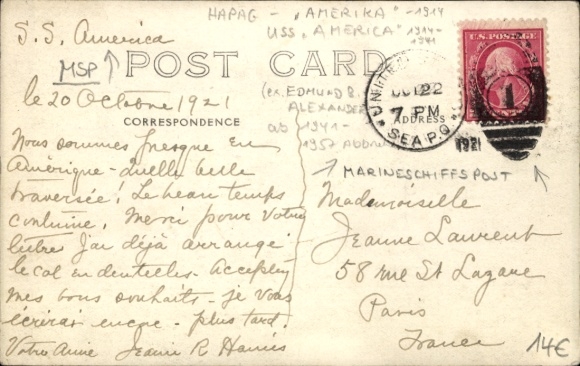 HAPAG - „AMERIKA" -1914
USS „AMERICA" 1914-
1941
S.S. America
MSP
POST CARD
(ex. EDMUND B.
ALEXANDER
ab 1941-
1957
le 20 Octobre 1921
CORRESPONDENCE
ADDRESS
U.S. POSTAGE
OCT 22
7 PM
SEAPO
1921
1
MARINESCHIFFSPOST
Nous sommes presque en
Amérique - quelle belle
traversée! Le beau temps
continue. Merci pour Votre
lettre J'ai déjà arrangé
le col en dentelles - Acceptez
mes bons souhaits - je Vous
écrirai encore - plus tard.
Votre Amie Jeanne R Harris
Mademoiselle
Jeanne Laurent
58 rue St Lazare
Paris
France
14€